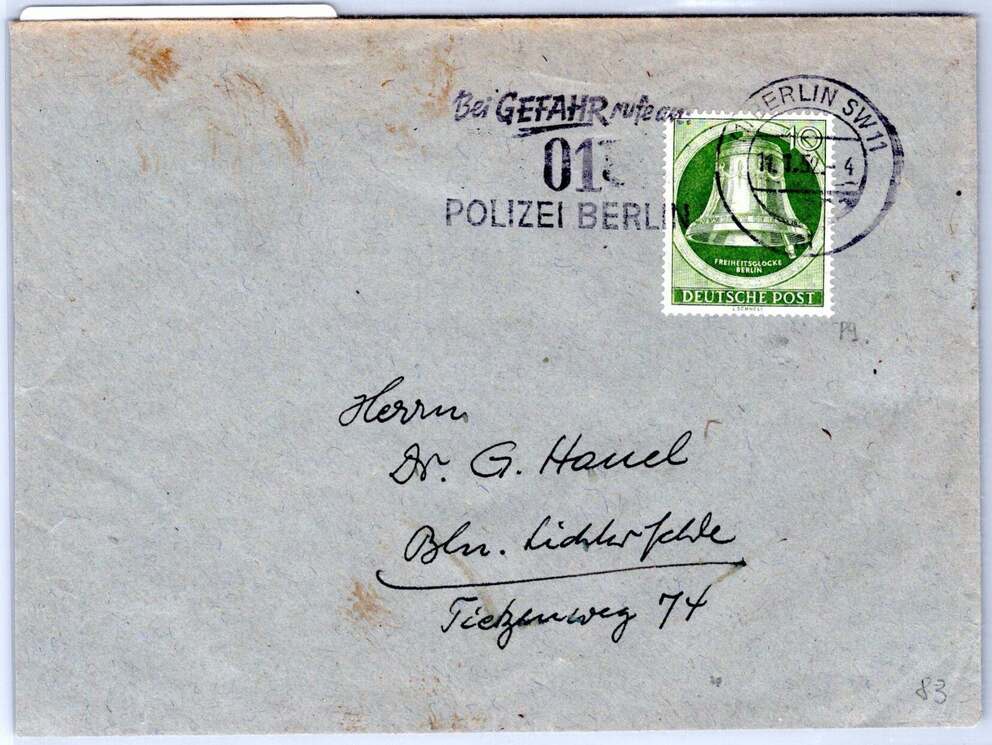 Bei GEFAHR rufe an:
01
POLIZEI BERLIN
BERLIN SW 11
11. 1.5 - 4
10
FREIHEITSGLOCKE
BERLIN
DEUTSCHE POST
Herrn
Dr. G. Hanel
Bln. Lichterfelde
Tietzenweg 74
83